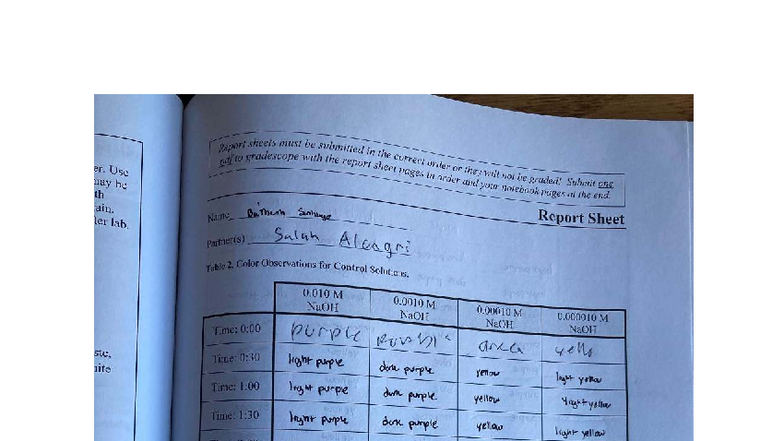 er. Use
may be
th
ain.
ler lab.
Report sheets must be submitted in the correct order or they will not be graded! Submit one
pdf to gradescope with the report sheet pages in order and your notebook pages at the end.
Report Sheet
Name
Partner(s) Salah
Table 2. Color Observations for Control Solutions.
0.010 M NaOH 0.0010 M NaOH 0.00010 M NaOH 0.000010 M NaOH
Time: 0:00 purple
Time: 0:30 light purple dark purple yellow light yellow
Time: 1:00 light purple dark purple yellow light yellow
Time: 1:30 light purple dark purple yellow light yellow